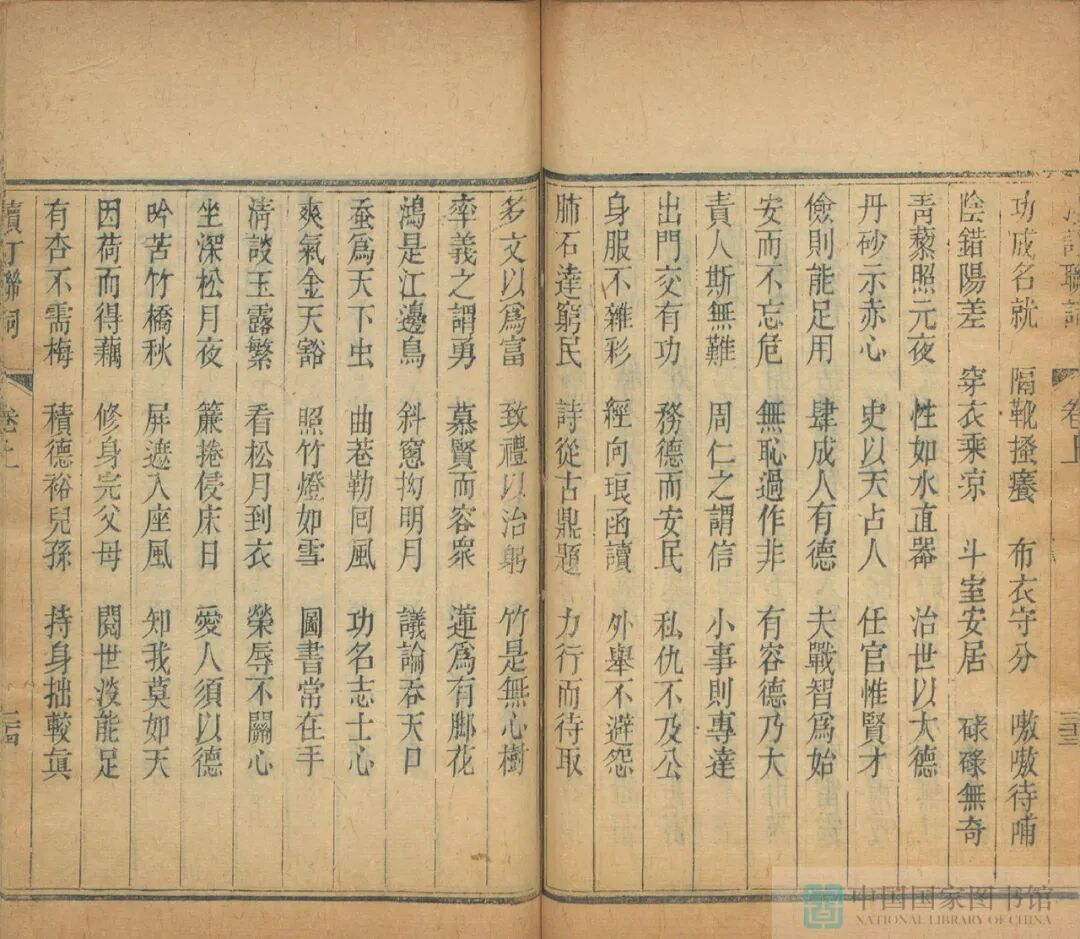 聯詞
卷上
三十三
功成名就 隔靴搔癢 布衣守分 嗷嗷待哺
陰錯陽差 穿衣乘凉 斗室安居 碌碌無奇
靑藜照元夜 性如水直器 治世以大德
丹砂示赤心 史以天占人 任官惟賢才
儉則能足用 肆成人有德 夫戰智爲始
安而不忘危 無恥過作非 有容德乃大
責人斯無難 周仁之謂信 小事則專達
出門交有功 務德而安民 私仇不及公
身服不雜彩 經向琅函讀 外舉不避怨
肺石達窮民 詩從古鼎題 力行而待取
多文以爲富 致禮以治躬 竹是無心樹
率義之謂勇 慕賢而容衆 蓮爲有脚花
鴻是江邊鳥 斜窻拘明月 議論吞天口
蚕爲天下虫 曲巷勒囘風 功名志士心
爽氣金天豁 照竹燈如雪 圖書常在手
淸談玉露繁 看松月到衣 榮辱不關心
坐深松月夜 簾捲侵床日 愛人須以德
吟苦竹橋秋 屏遮入座風 知我莫如天
因荷而得藕 修身完父母 閱世淡能足
有杏不需梅 積德裕兒孫 持身拙較眞
聯詞
卷上
三十四
中国国家图书馆
NATIONAL LIBRARY OF CHINA